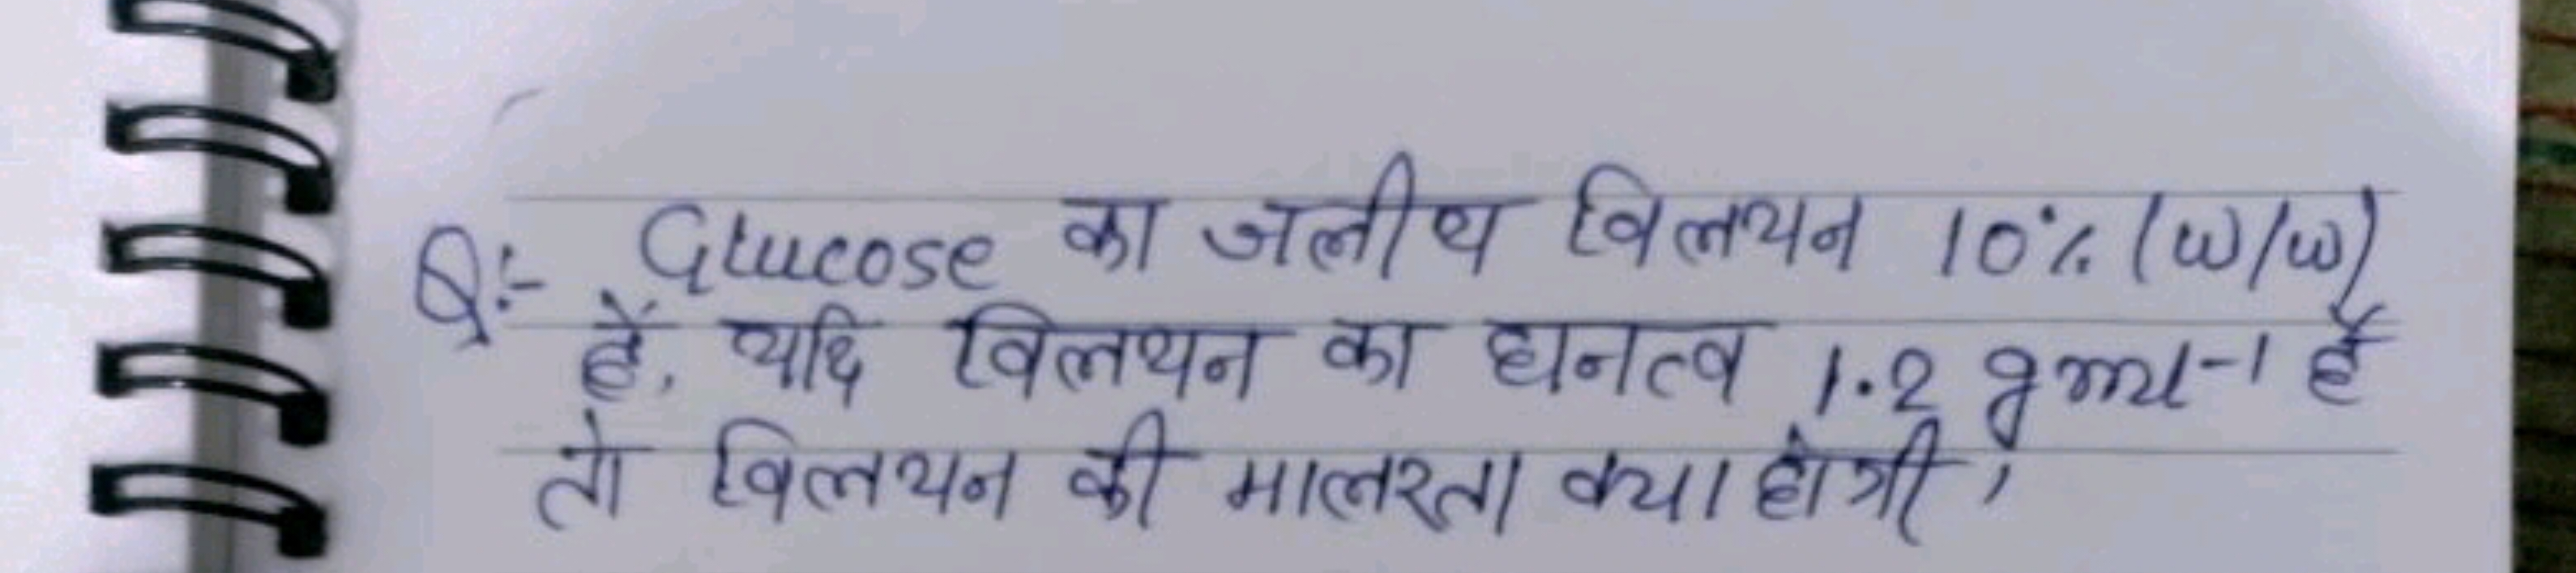 Q:- Glucose का जलीय विलयन 10% (w/w)
है, यदि विलयन का घनत्व 1.2 g ml-1 है
तो विलयन की मालरता क्या होगी,